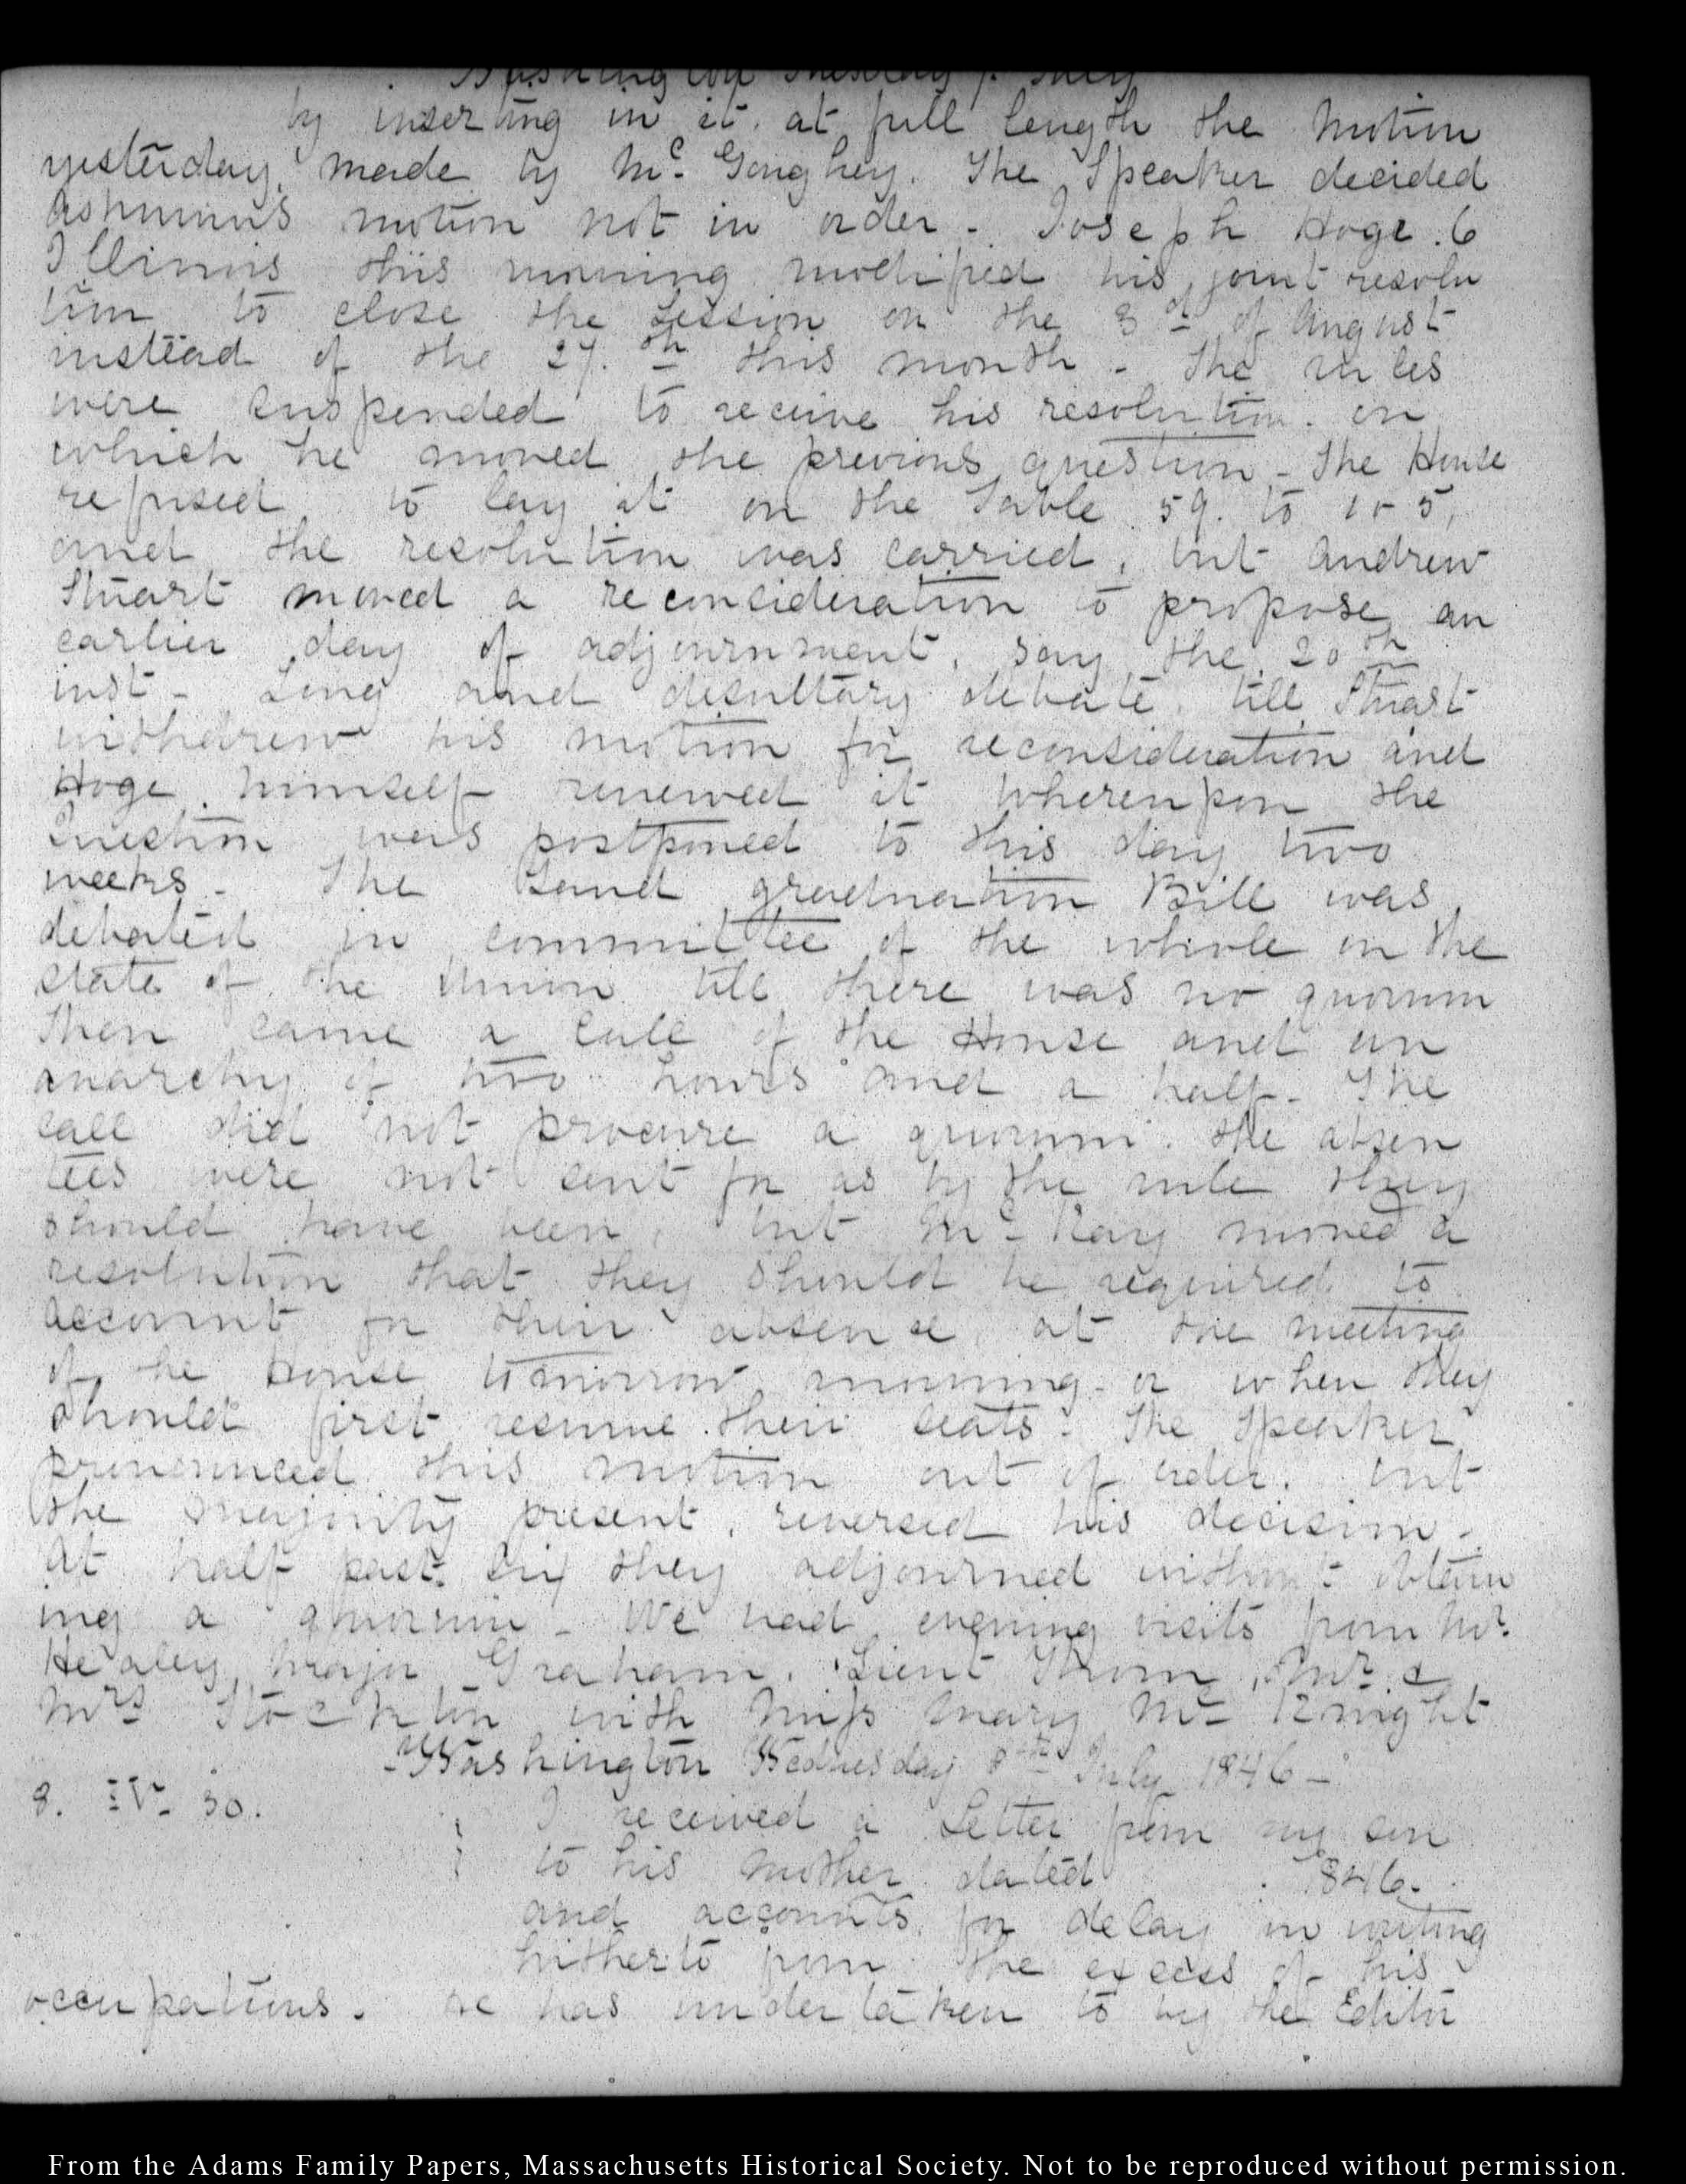 Washington Tuesday 7. July
by inserting in it, at full length the motion
yesterday, made by Mc. Gaughey. The Speaker decided
Ashmun's motion not in order - Joseph Hoge. 6
Illinois this morning modified his joint resolu
tion to close the session on the 3d. of August
instead of the 27.th this month - The rules
were suspended to receive his resolution. on
which he moved the previous question - The House
refused to lay it on the Table 59. to 105,
and the resolution was carried, but Andrew
Stuart moved a reconsideration to propose an
earlier day of adjournment, say the 20th
inst - Long and desultory debate till Stuart
withdrew his motion for reconsideration and
Hoge himself renewed it whereupon the
question was postponed to this day two
weeks - The Land graduation Bill was
debated in committee of the whole on the
state of the Union till there was no quorum
Then came a Call of the House and an
anarchy of two hours and a half - The
call did not procure a quorum. the absen
tees were not sent for as by the rule they
should have been, but Mc Kay moved a
resolution that they should be required to
account for their absence at the meeting
of he House tomorrow morning - or when they
should first resume their seats - The Speaker
pronounced this motion out of order. but
the majority present, reversed his decision -
At half past six they adjourned without obtain
ing a quorum - We had evening visits from Mr.
Healey, Major Graham, Lieut Thom, Mr. &
Mrs Stockton with Miss Mary Mc Knight
Washington Wednesday 8th July 1846 -
8. IV. 30.
I received a Letter from my son
to his mother dated 1846.
and accounts for delay in writing
hitherto from the excess of his
occupations. he has undertaken to by the Editor